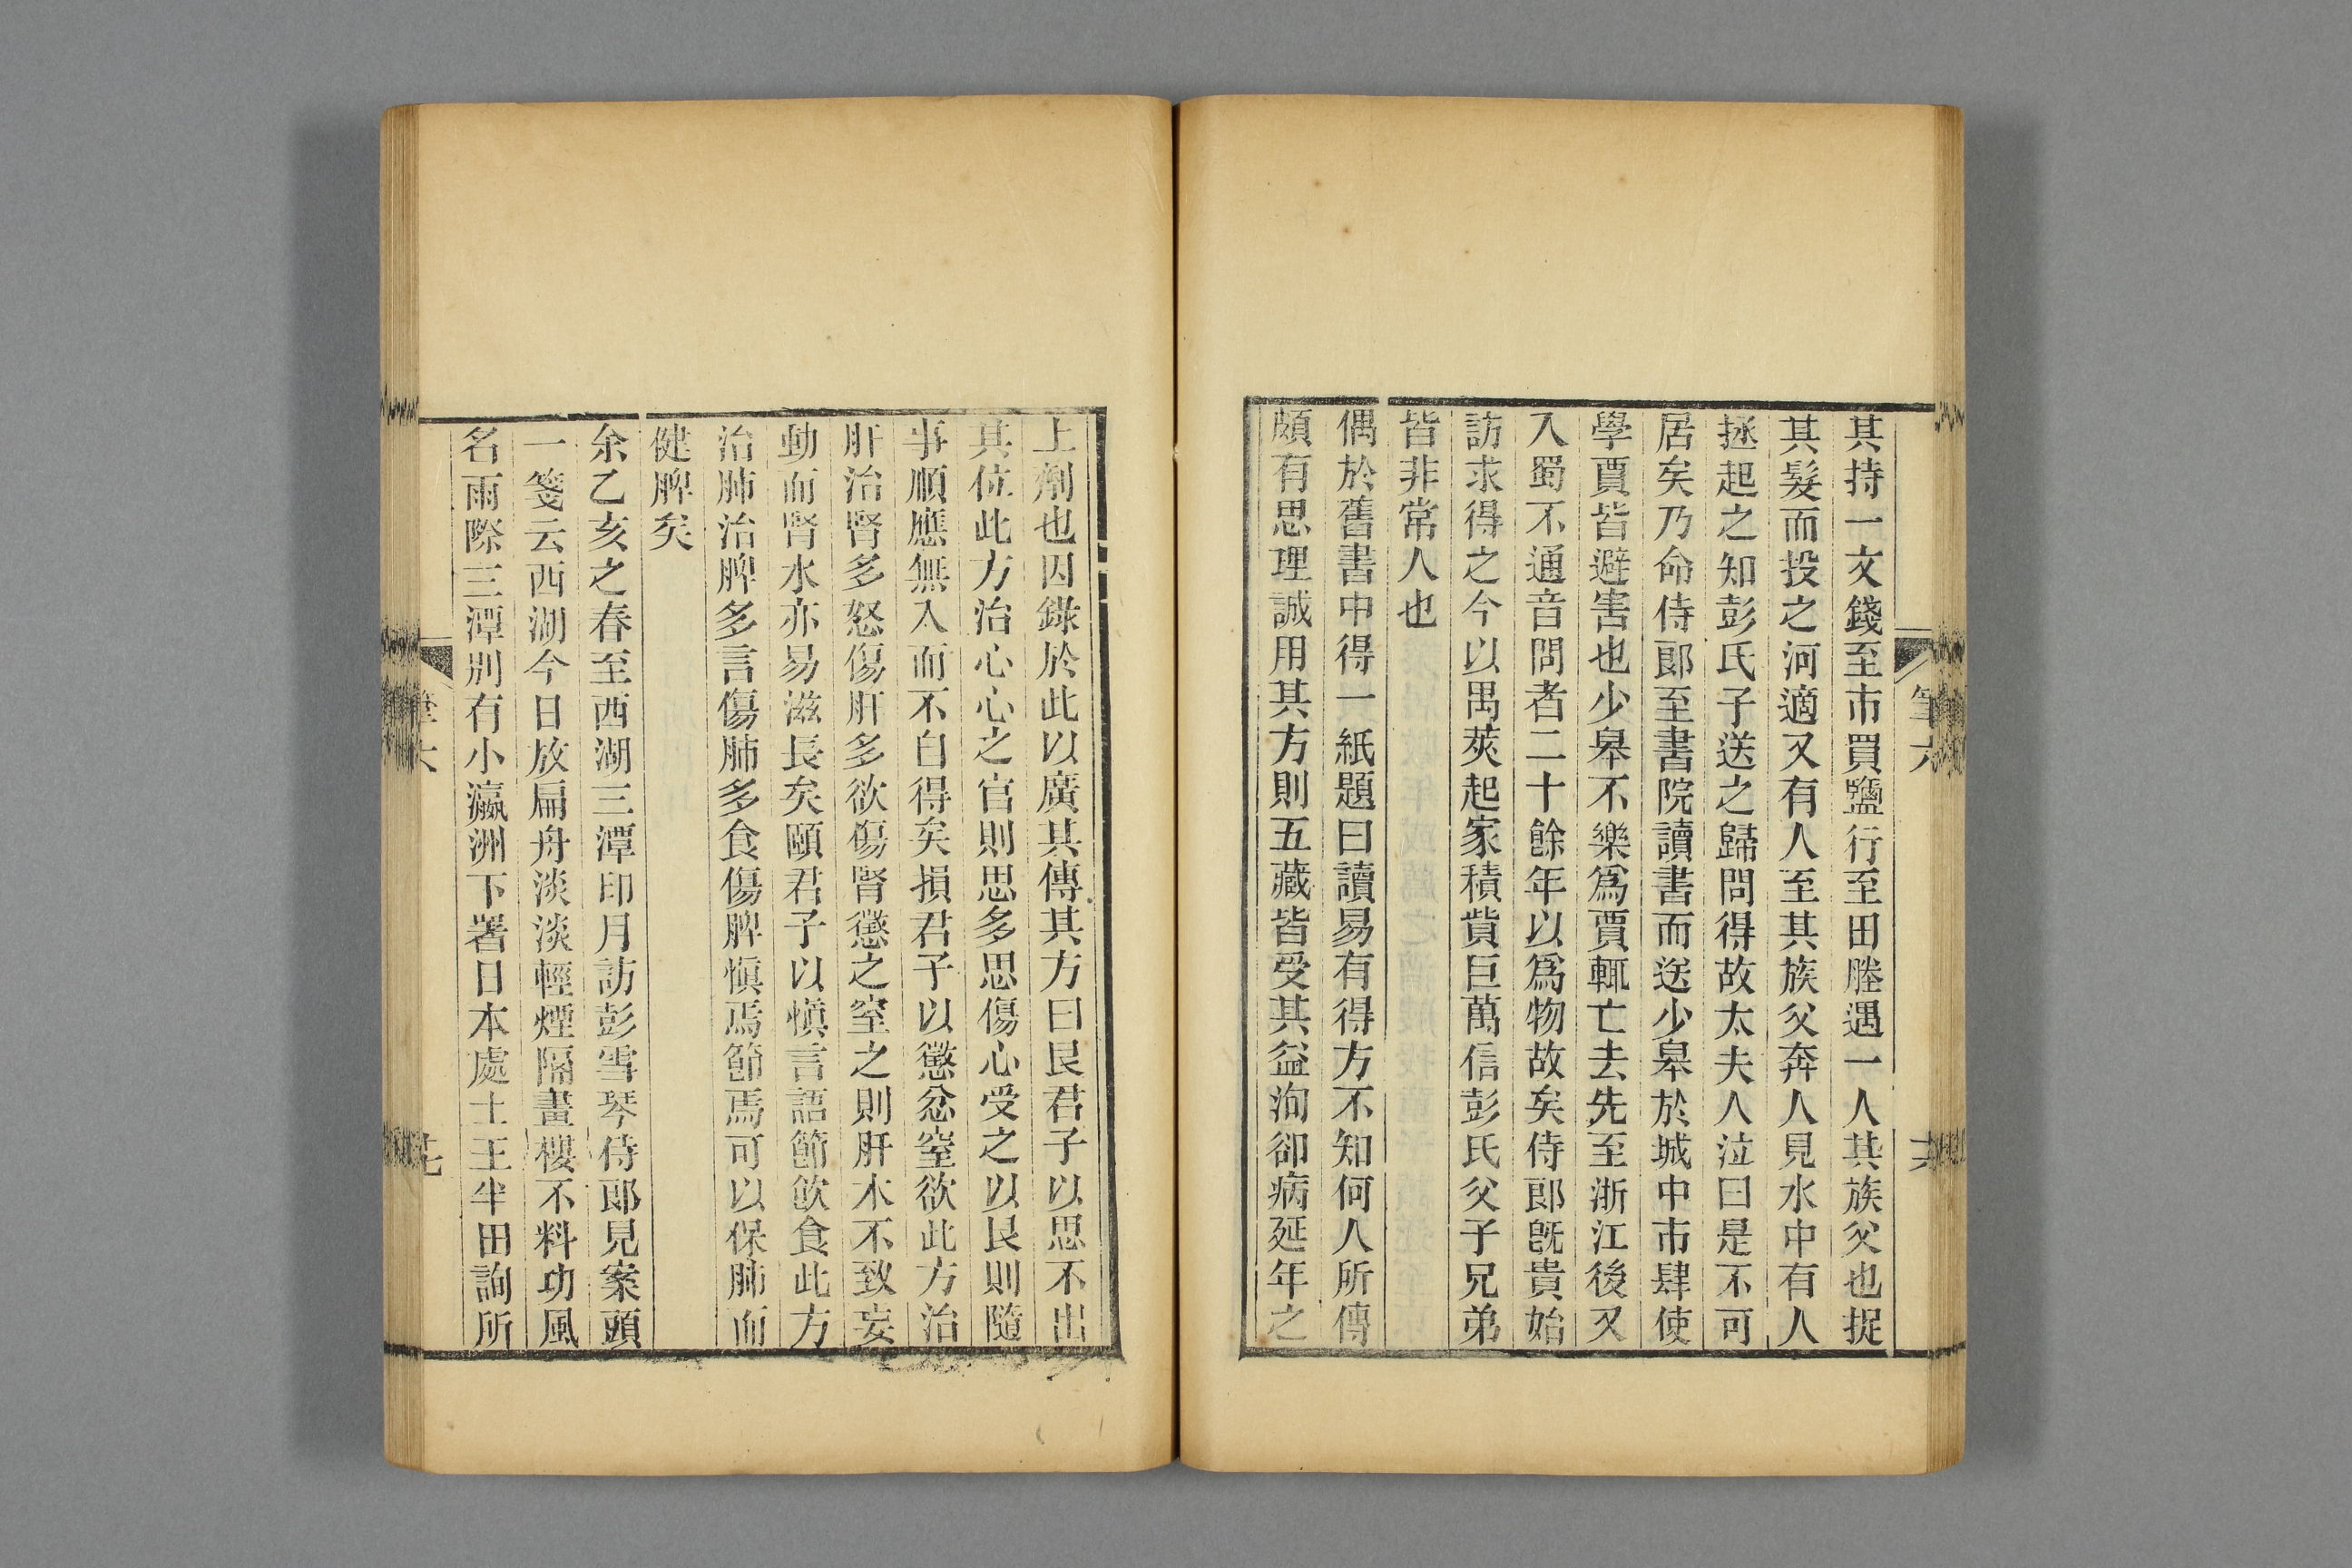 其持一文錢至市買鹽行至田塍遇一人其族父也捉
其髮而投之河適又有人至其族父奔人見水中有人
拯起之知彭氏子送之歸問得故太夫人泣曰是不可
居矣乃命侍郎至書院讀書而送少皋於城中市肆使
學賈皆避害也少皋不樂爲賈輒亡去先至浙江後又
入蜀不通音問者二十餘年以爲物故矣侍郎旣貴始
訪求得之今以禺莢起家積貲巨萬信彭氏父子兄弟
皆非常人也
偶於舊書中得一紙題曰讀易有得方不知何人所傳
頗有思理誠用其方則五藏皆受其益洵卻病延年之
上劑也因錄於此以廣其傳其方曰艮君子以思不出
其位此方治心心之官則思多思傷心受之以艮則隨
事順應無入而不自得矣損君子以懲忿窒欲此方治
肝治腎多怒傷肝多欲傷腎懲之窒之則肝木不致妄
動而腎水亦易滋長矣頤君子以愼言語節飮食此方
治肺治脾多言傷肺多食傷脾愼焉節焉可以保肺而
健脾矣
余乙亥之春至西湖三潭印月訪彭雪琴侍郎見案頭
一箋云西湖今日放扁舟淡淡輕煙隔畫樓不料功風
名雨際三潭別有小瀛洲下署日本處士王半田詢所
筆六